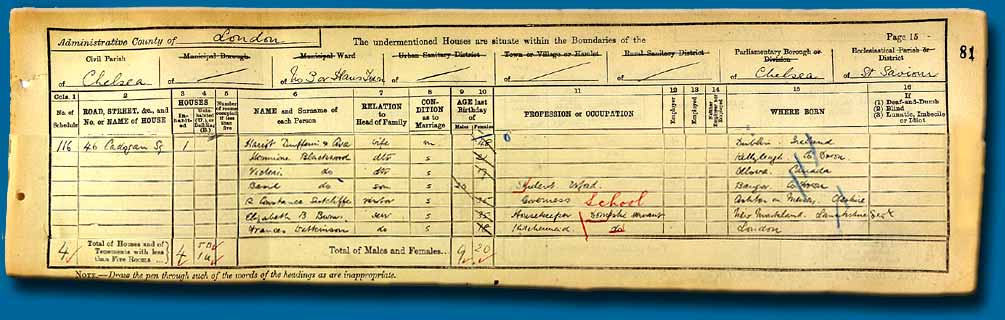 Administrative County of London
The undermentioned Houses are situate within the Boundaries of the
Page 15
81
Civil Parish
of Chelsea
Municipal Borough
of
Municipal Ward
of No 3 or Hans Town
Urban Sanitary District
of
Town or Village or Hamlet
of
Rural Sanitary District
of
Parliamentary Borough or Division
of Chelsea
Ecclesiastical Parish or District
of St Saviour
Cols. 1 2 3 4 5 6 7 8 9 10 11 12 13 14 15 16
No. of Schedule
ROAD, STREET, &c., and No. or NAME of HOUSE
HOUSES
Inhabited
Uninhabited (U.), or Building (B.)
Number of rooms occupied if less than five
NAME and Surname of each Person
RELATION to Head of Family
CONDITION as to Marriage
AGE last Birthday of
Males Females
PROFESSION or OCCUPATION
Employer
Employed
Neither Employer nor Employed
WHERE BORN
If
(1) Deaf-and-Dumb
(2) Blind
(3) Lunatic, Imbecile or Idiot
116 46 Cadogan Sq 1 Hariot Dufferin & Ava wife m Dublin Ireland
Blackwood dtr s Killyleagh Co Down
Victoria do dtr s 17 Ottawa Canada
do son s 20 Student Oxford Bangor Co Down
Constance Sutcliffe visitor s 35 Governess School Ashton on Mersey Cheshire
Elizabeth B serv s 35 Housekeeper domestic servant New Lanarkshire
Frances do s Kitchenmaid do London
4 Total of Houses and of Tenements with less than Five Rooms 4
Total of Males and Females.. 9 20
NOTE.—Draw the pen through such of the words of the headings as are inappropriate.